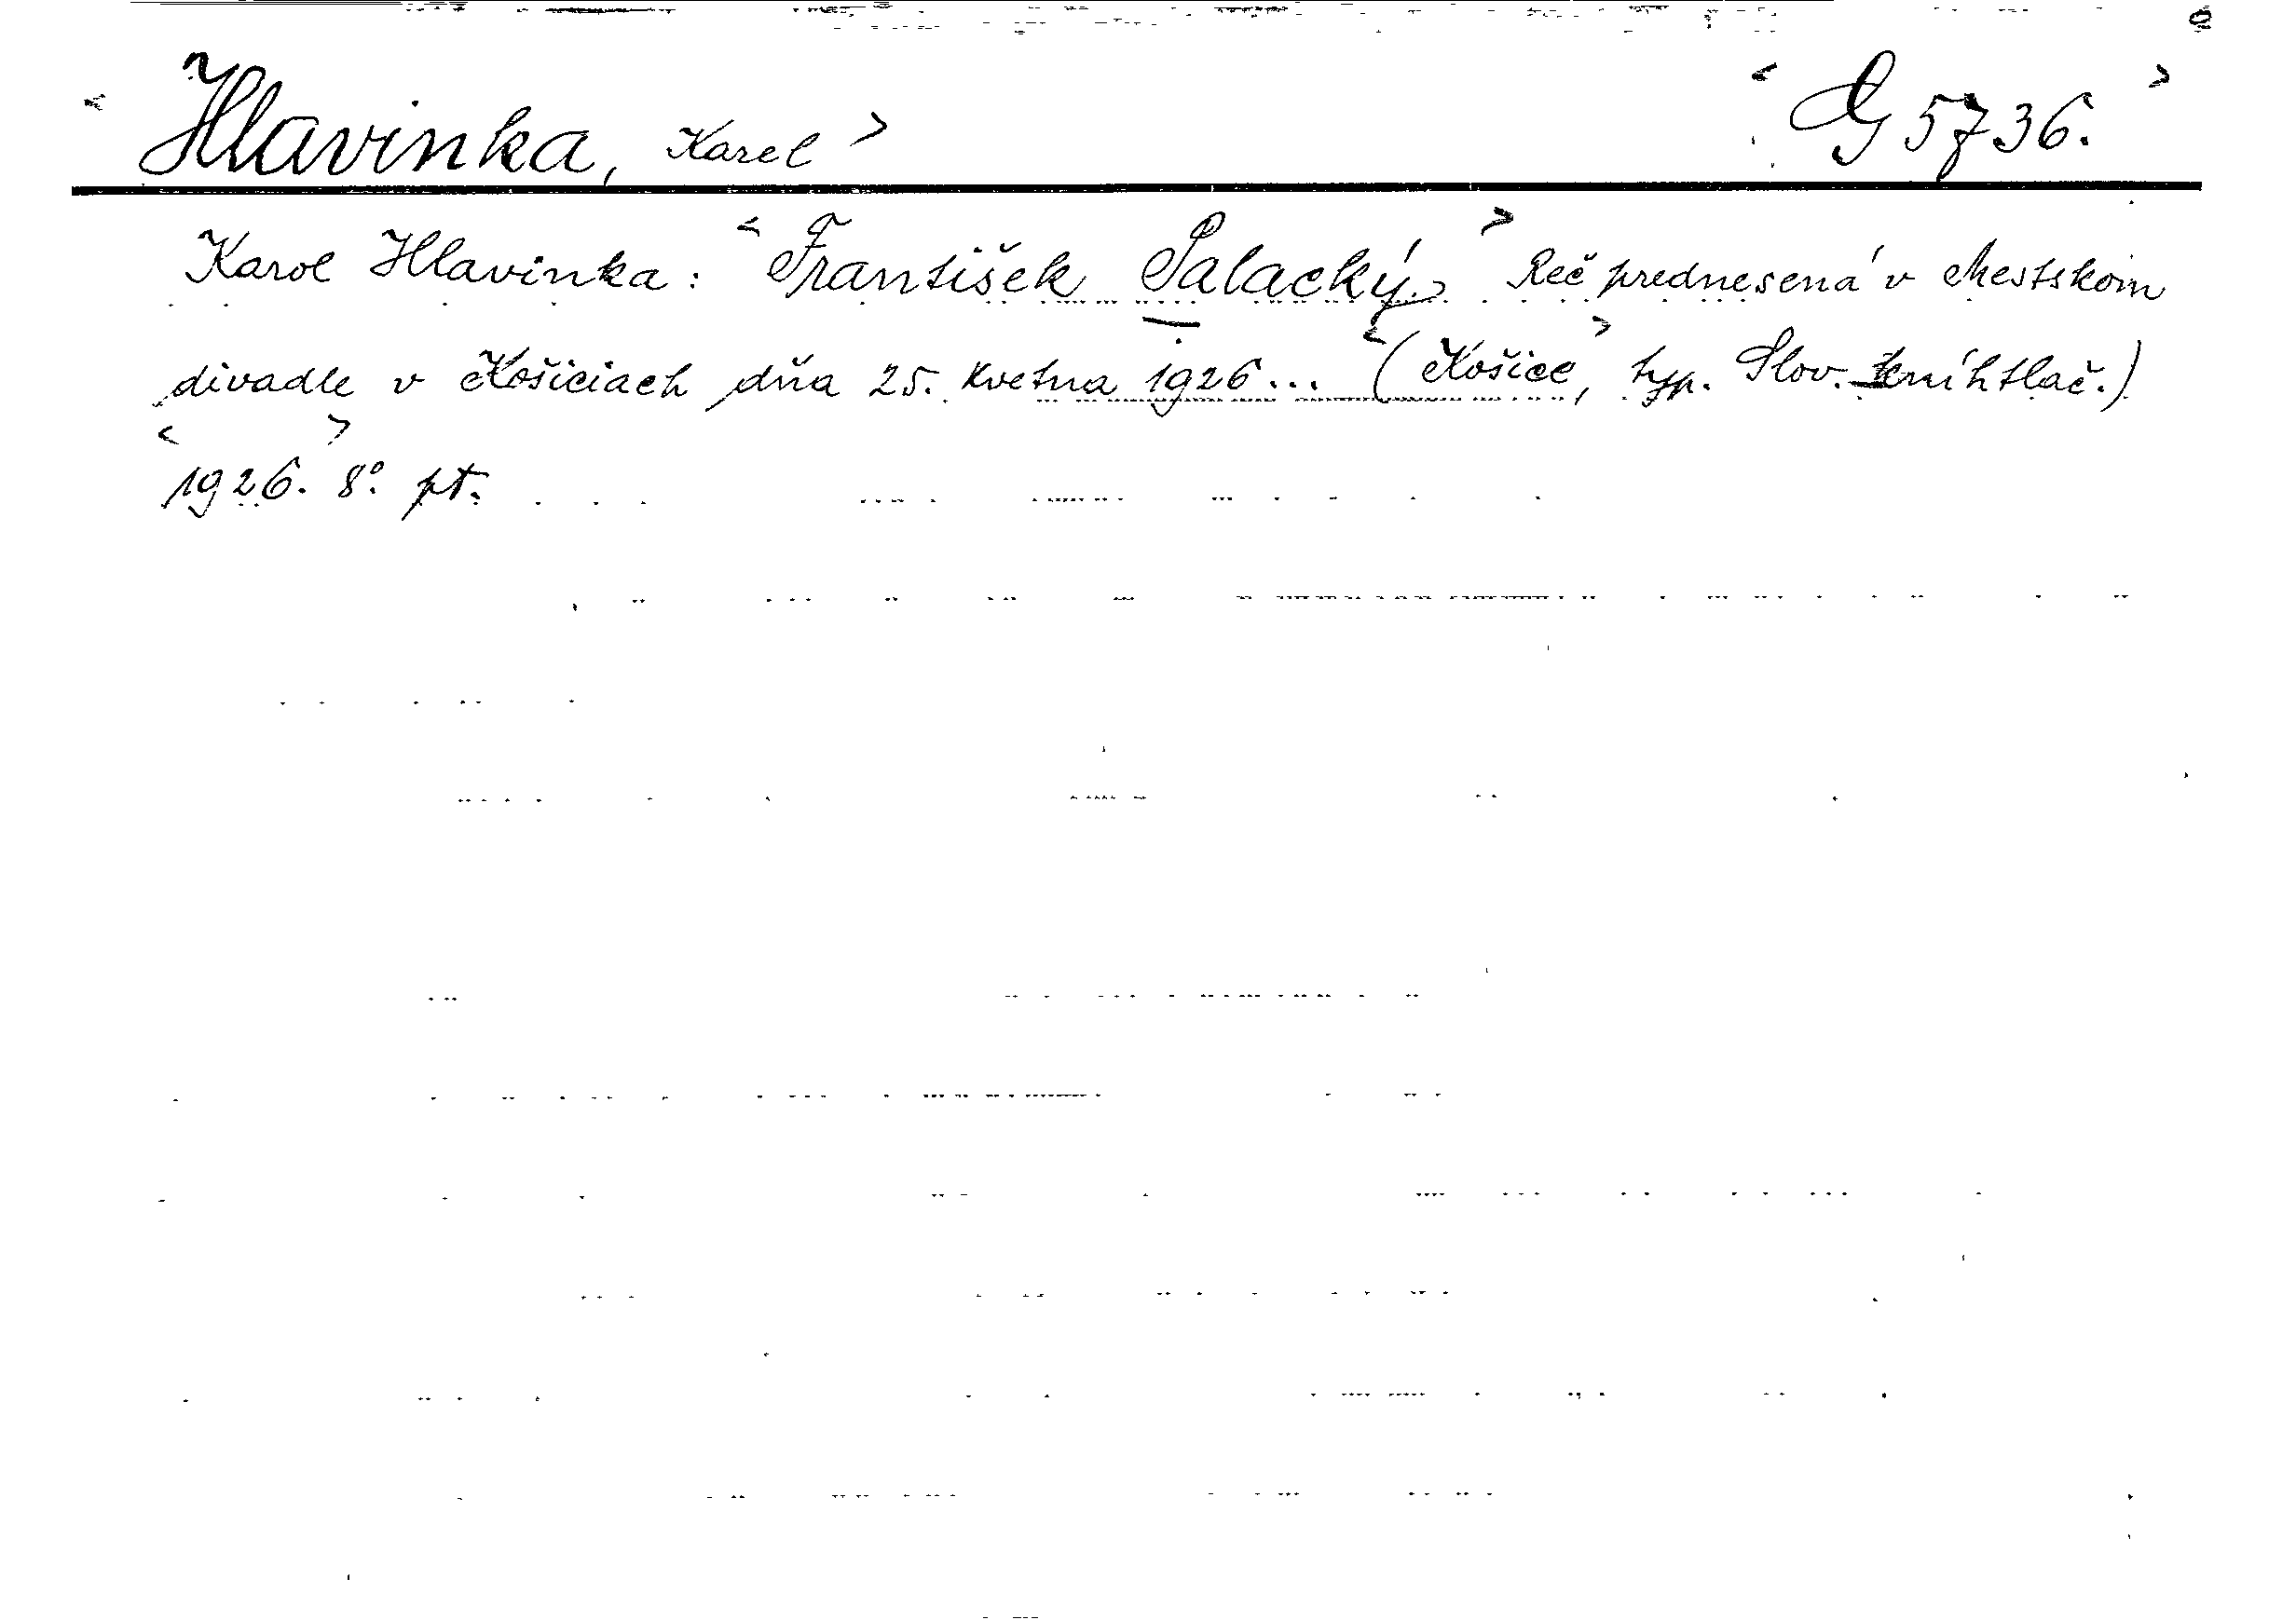 < Hlavinka, Karel > < G 5736. >
Karol Hlavinka: < František Palacký. > Reč prednesená v Mestskom
divadle v Košiciach dňa 25. kvetna 1926... < (Košice, > typ. Slov. kníhtlač.)
< 1926. > 8° pt.